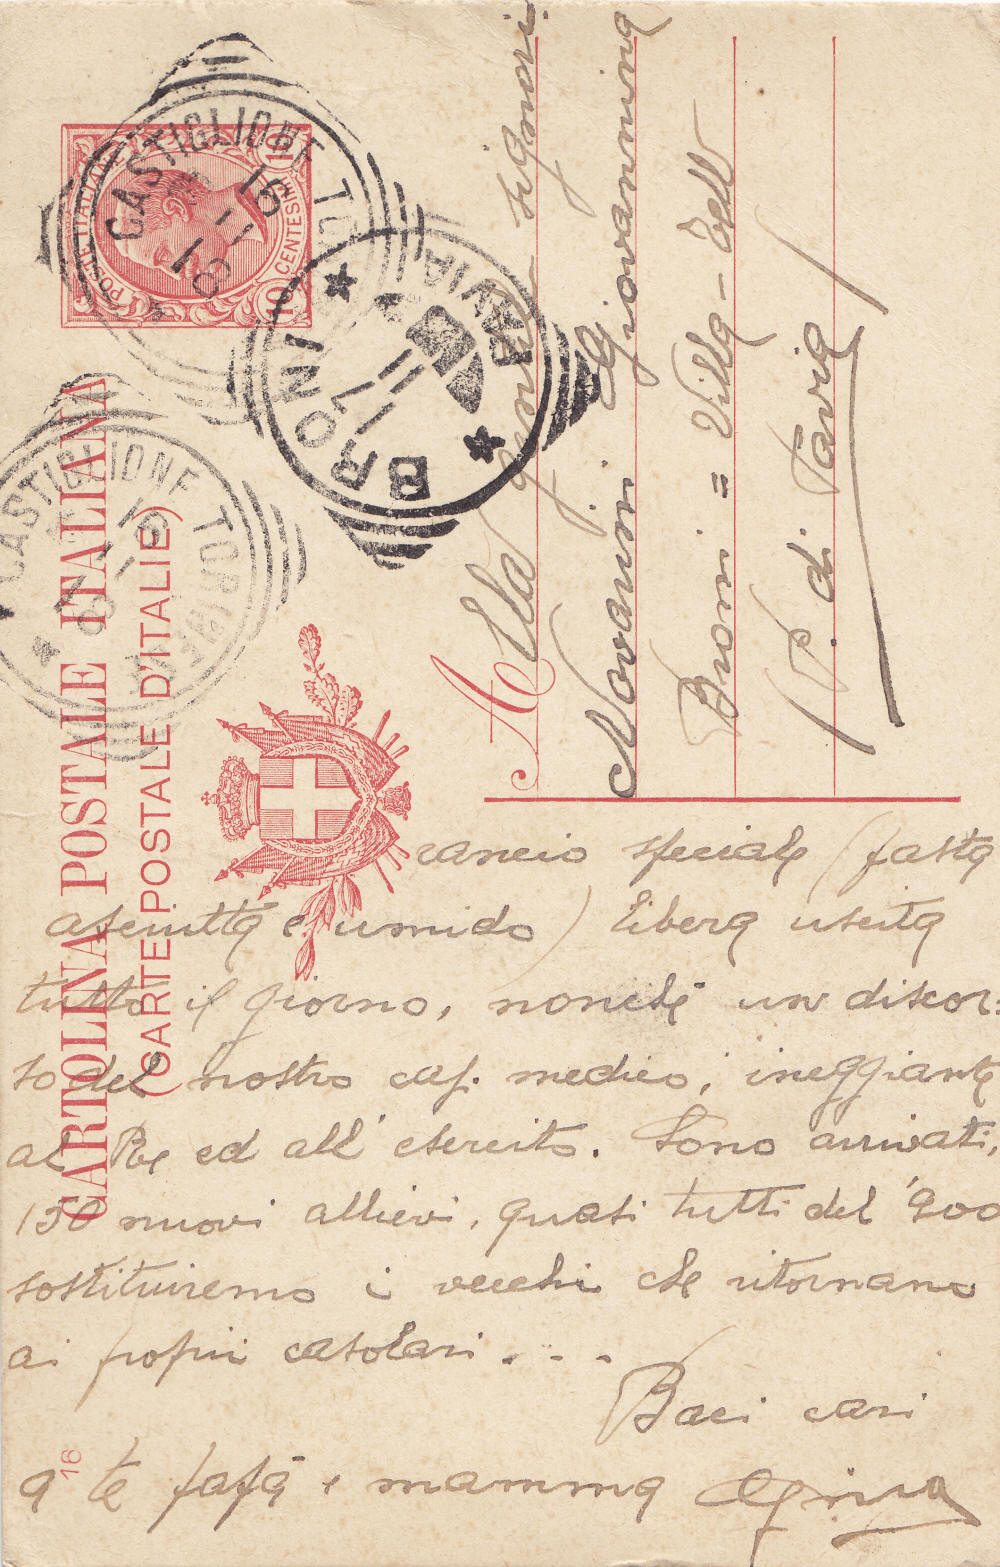 POSTE ITALIANE
10 CENTESIMI 10
CASTIGLIONE TORINESE
16
BRONI
PAVIA
11
CASTIGLIONE TORINESE
16
CARTOLINA POSTALE ITALIANA
(CARTE POSTALE D'ITALIE)
Alla gentil signorina
Novarini Giovannina
Broni = Villa -
P. di Pavia
rancio speciale (pasta
asciutta e umido) libera uscita
tutto il giorno, nonchè un discor-
so del nostro cap. medico, ineggiante
al Re ed all' esercito. Sono arrivati,
150 nuovi allievi, quasi tutti del '900
sostituiremo i vecchi che ritornano
ai propri casolari . . .
Baci cari
a te papà e mamma
16